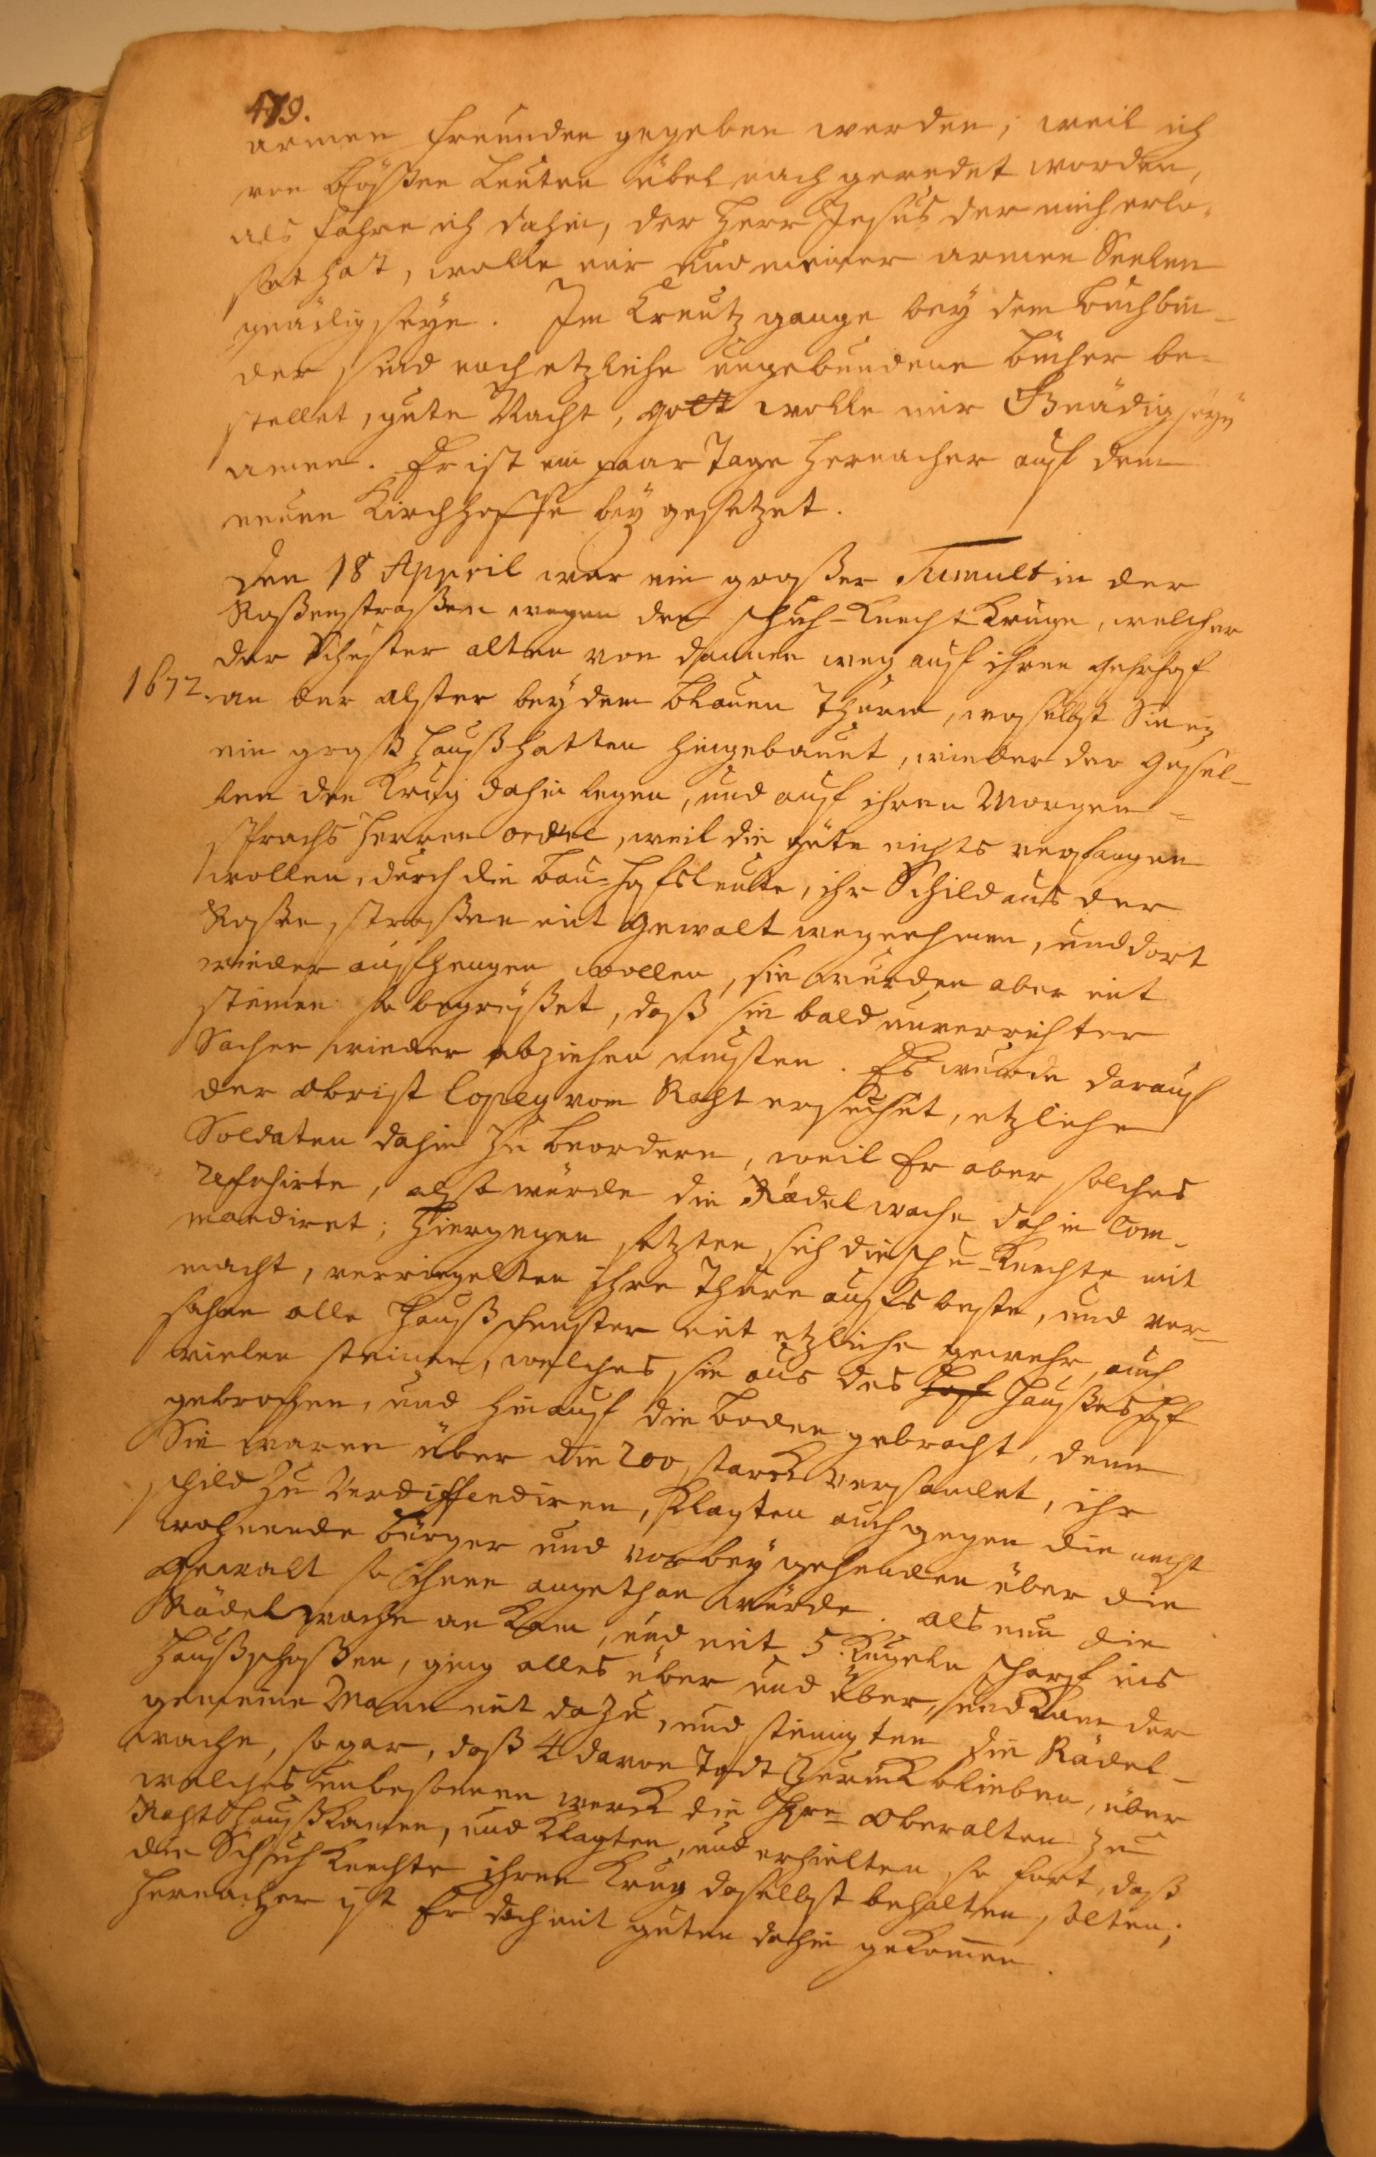 479.
armen freunden gegeben werden, weil ich
von bößen Leuten übel nach geredet worden,
als fahre ich dahin, der Herr Jesus der mich erlö-
set hat, wolle mir und meiner armen Seelen
gnädig seyn. Im Creutz gange bey dem Buchbin-
der sind noch etzliche ungebundene bücher be-
stellet, gute Nacht, gott wolle mir Gnädig seyn
amen. Er ist ein paar Tage hernacher auf dem
neuen Kirchhoffe bey gesetzet.
Den 18 Appril war ein großer Tumult in der
Roßenstraßen wegen der schuh-Knecht Kruge, welcher
der Schuster alten von dannen weg auf ihren Gehrhof
1672. an der alster bey dem blauen Thurm, woselbst Sie
ein groß Hauß hatten hingebauet, wieder der Gesel-
len den Krug dahin legen, und auf ihren Morgen-
sprachs Herren order, weil die güte nichts verfangen
wollen, durch die Bau-hofsleute, ihr Schild aus der
Roßenstraßen mit gewalt wegnehmen, und dort
wieder aufhengen wollen, sie wurden aber mit
steinen so begrüßet, daß sie bald unverrichter
Sachen wieder abziehen musten. Es wurde darauf
der obrist Copey vom Raht ersuchet, etzliche
Soldaten dahin zu beordern, weil Er aber solches
refusirte, also würde die Rädelwache dahin Com-
mandiret; Hiergegen setzten sich die schu-Knechte mit
macht, verriegelten ihre Thüre aufs beste, und ver-
sahen alle Hauß fenster mit etzliche gewehr, auch
vielen steinen, welches sie aus des Hoff Haußes Hof
gebrochen, und hinauf die boden gebracht, denn
Sie waren über die 200 starck versamlet, ihr
schild zu Verdiffendiren, klagten auch gegen die nechst
wohnende bürger und vorbey gehenden über die
Gewalt so ihnen angethan würde. als nun die
Rädelwache an kam, und mit 5 Kugeln scharf ins
Hauß schoßen, ging alles über und über, und kam der
gemeine Mann mit dazu, und steinigten die Rädel-
wache, so gar, daß 4 davon Todt zurück blieben, über
welches unbesonnen werck die Hrn oberalten zu
Rahthauß kamen, und klagten, und erhielten so fort, daß
die Schuh Knechte ihren Krug daselbst behalten solten;
hernacher ist Er doch mit guten dahin gekommen.